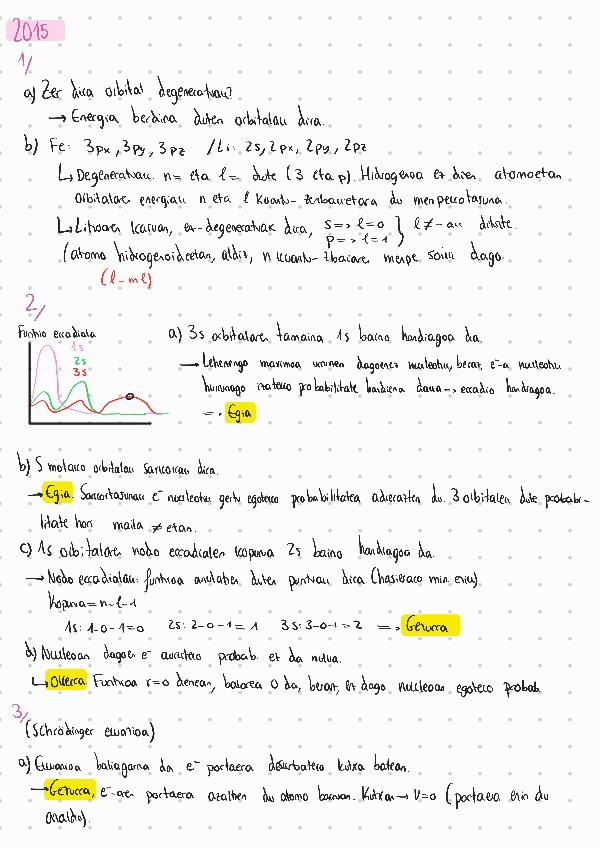 2015
1/
a) Zer dira orbital degeneratuak?
→ Energia berdina duten orbitalak dira.
b) Fe: 3px, 3py, 3pz / Li: 2s, 2px, 2py, 2pz
↳ Degeneratuak. n= eta l= dute (3 eta p). Hidrogenoa ez diren atomoetan
orbitalaren energiak n eta l kuantu-zenbakietara du menpekotasuna.
↳ Litioaren kasuan, ez-degeneratuak dira, s=> l=0 } l≠-ak dituzte.
p=> l=1
(atomo hidrogenoideetan, aldiz, n kuantu-zbakiaren menpe soilik dago.
(l-ml)
2/
Funtzio erradiala
1s
2s
3s
a) 3s orbitalaren tamaina 1s baino handiagoa da.
→ Lehenengo maximoa urrunen dagoenez nukleotik, beraz, e⁻-a nukleotik
hurrunago izateko probabilitate handiena dauka → erradio handiagoa.
=> Egia
b) S motako orbitalak sarkorrak dira.
→ Egia. Sarkortasunak e⁻ nukleotik gertu egoteko probabilitatea adierazten du. 3 orbitalek dute probabi-
litate hori maila ≠etan.
c) 1s orbitalaren nodo erradialen kopurua 2s baino handiagoa da.
→ Nodo erradialak: funtzioa anulatzen duten puntuak dira (hasierako min. ezik)
Kopurua = n-l-1
1s: 1-0-1=0 2s: 2-0-1=1 3s: 3-0-1=2 => Gezurra
d) Nukleoan dagoen e⁻ aurkitzeko probab. ez da nulua.
↳ Okerra Funtzioa r=0 denean, balorea 0 da, beraz, ez dago nukleoan egoteko probab.
3/
(Schrödinger ekuazioa)
a) Ekuazioa baliagarria da e⁻ portaera deskribatzeko kutxa batean.
→ Gezurra, e⁻-aren portaera azaltzen du atomo barruan. Kutxan → V=0 (portaera ezin du
azaldu).